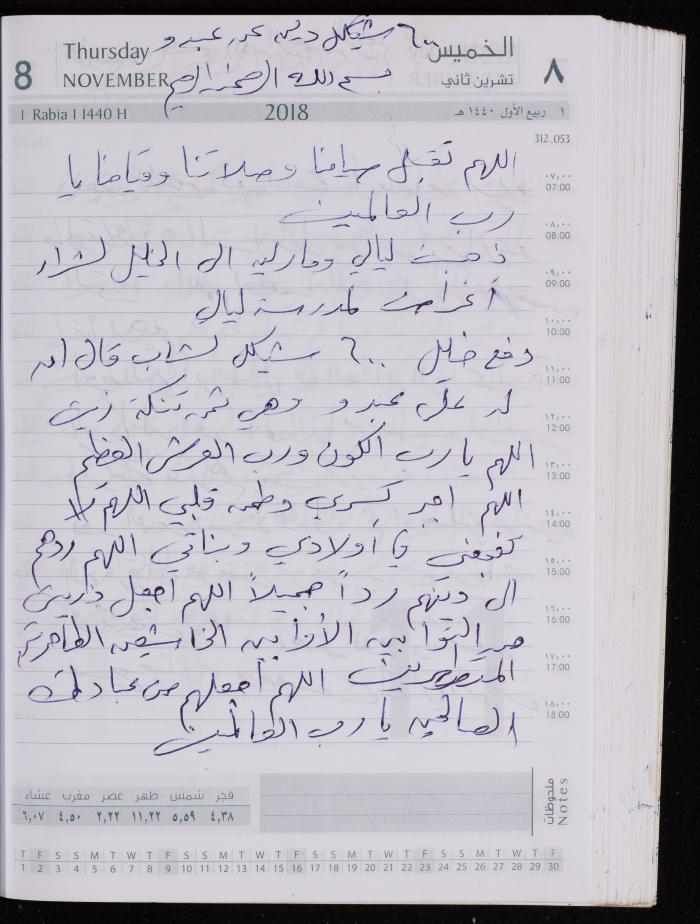 ٦٠٠ شيكل دين على عبد و
Thursday الخميس
8 NOVEMBER تشرين ثاني ٨
بسم الله الرحمن الرحيم
1 Rabia I 1440 H 2018 ١ ربيع الأول ١٤٤٠ هـ
312.053
اللهم تقبل صيامنا وصلاتنا وقيامنا يا
٠٧,٠٠
07:00
رب العالمين
٠٨,٠٠
08:00
ذهبت ليالي ومارليه الى الخليل لشراء
٠٩,٠٠
09:00
أغراض لمدرسة ليالي
١٠,٠٠
10:00
دفع خليل ٦٠٠ شيكل لشاب قال انه
١١,٠٠
11:00
له على عبد و وهي ثمن تنكة زيت
١٢,٠٠
12:00
اللهم يا رب الكون ورب العرش العظيم
١٣,٠٠
13:00
اللهم اجبر كسري وطمن قلبي اللهم لا
١٤,٠٠
14:00
تفجعني في أولادي وبناتي اللهم ردهم
١٥,٠٠
15:00
الى دينهم رداً جميلاً اللهم اجعل ذريتي
١٦,٠٠
16:00
من التوابين الأوابين الخاشعين الطاهرين
١٧,٠٠
17:00
المتطهرين اللهم اجعلهم من عبادك
١٨,٠٠
18:00
الصالحين يا رب العالمين
ملحوظات
Notes
فجر شمس ظهر عصر مغرب عشاء
٤,٣٨ ٥,٥٩ ١١,٢٢ ٢,٢٢ ٤,٥٠ ٦,٠٧
T F S S M T W T F S S M T W T F S S M T W T F S S M T W T F
1 2 3 4 5 6 7 8 9 10 11 12 13 14 15 16 17 18 19 20 21 22 23 24 25 26 27 28 29 30